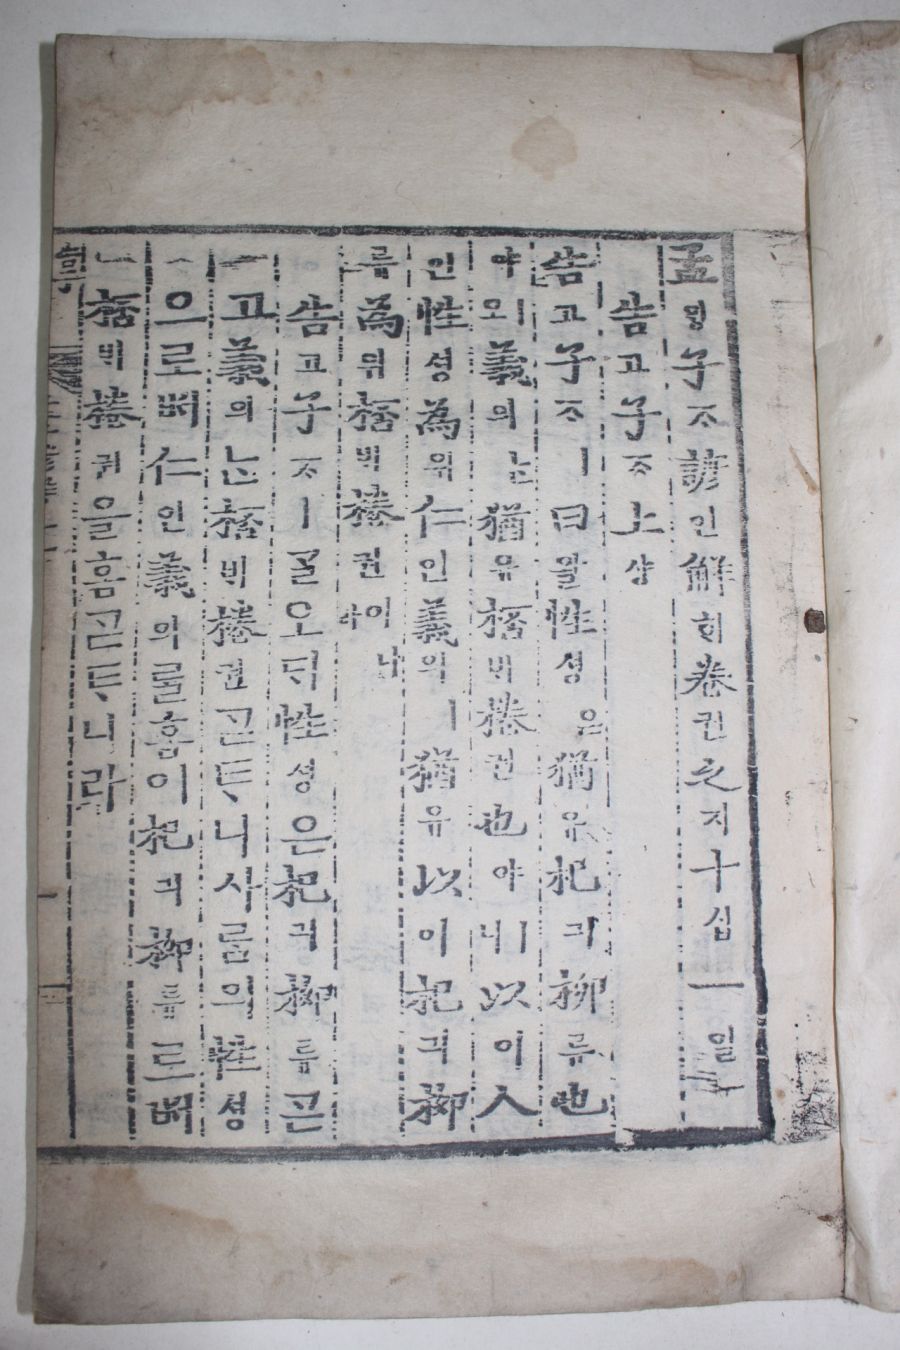 孟ᄆᆡᆼ子ᄌᆞ諺언解ᄒᆡ卷권之지十십一일
告고子ᄌᆞ上샹
告고子ᄌᆞㅣ曰왈性셩은猶유杞긔柳류也
야ㅣ오義의ᄂᆞᆫ猶유桮ᄇᆡ棬권也야ㅣ니以이人
인性셩為위仁인義의ㅣ猶유以이杞긔柳
류為위桮ᄇᆡ棬권이니라
告고子ᄌᆞㅣᄀᆞᆯ오ᄃᆡ性셩은杞긔柳류ᄀᆞᆮ
고義의ᄂᆞᆫ桮ᄇᆡ棬권ᄀᆞᆮᄐᆞ니사ᄅᆞᆷ의性셩
으로ᄡᅥ仁인義의ᄅᆞᆯ홈이杞긔柳류로ᄡᅥ
桮ᄇᆡ棬권을홈ᄀᆞᆮᄐᆞ니라